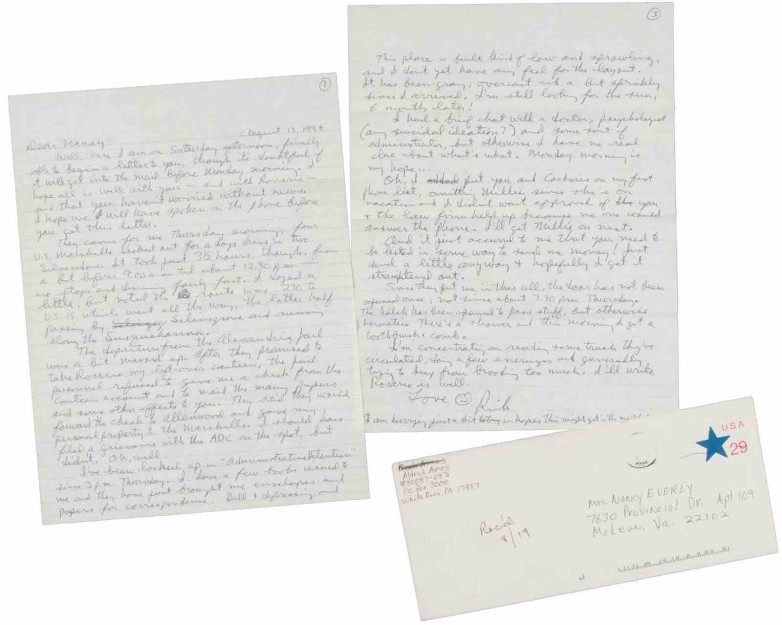 (August 13, 1994
Dear Nancy:
Well here I am on Saturday afternoon, finally
able to begin a letter to you, though its doubtful if
it will get into the mail before Monday morning. I
hope all is well with you — and with Rosario —
and that you haven't worried without news.
I hope we will have spoken on the phone before
you get this letter.
They came for me Thursday morning, four
U.S. Marshalls decked out for a days drive in two
It took just 3½ hours, though, from
a bit before 9:00 am til about 12:30 p.m.
no stops and driving fairly fast. I dozed a
little, but noted the route was 270 to
U.S. 15 which went all the way, the latter half
passing by Selinsgrove and running
along the Susquehanna.
The departure from the Alexandria jail
was a bit messed up. After they promised to
take Rosario my left-over canteen, the jail
personnel refused to give me a check from the
canteen account and to mail the many papers
and some other effects to you. They said they would
forward the check to Allenwood and gave my
personal property to the Marshalls. I should have
filed a grievance with the ADC on the spot, but
didn't. Oh, well.
I've been locked up in "Administrative Detention"
since 3 p.m. Thursday. I have a few books issued to
me and they have just brought me envelopes and
papers for correspondence. Bill + depressing and
3
This place is built kind of low and sprawling,
and I don't yet have any feel for the layout.
It has been gray, overcast and a bit sprinkly
since I arrived. I'm still looking for the sun,
6 months later!
I had a brief chat with a doctor, psychologist
(any suicidal ideation?) and some sort of
administrator, but otherwise I have no real
clue about what's what. Monday morning is
my hope.
Oh, I put you and Cacheris on my first
phone list, omitting Millie since she is on
vacation and I didn't want approval of you
+ the law firm held up because no one would
answer the phone. I'll get Millie on next.
And it just occurred to me that you need to
be listed in some way to send me money! Just
send a little anyway + hopefully I get it
straightened out.
Since they put me in this cell, the door has not been
opened once, not since about 7:30 pm Thursday.
The hatch has been opened to pass stuff, but otherwise
hermetic. There's a shower and this morning I got a
toothbrush + comb.
I'm concentrating on reading some trash they've
circulated, doing a few exercises, and generally
trying to keep from brooding too much. I'll write
Rosario as well.
Love Rick
I am hurrying just a bit today in hopes this might get in the mail
Aldrich Ames
P.O. Box 3000
White Deer, PA 17887
Rec'd
8/19
USA
29
Mrs Nancy Everly
7630 Provincial Dr. Apt 109
McLean, Va. 22102